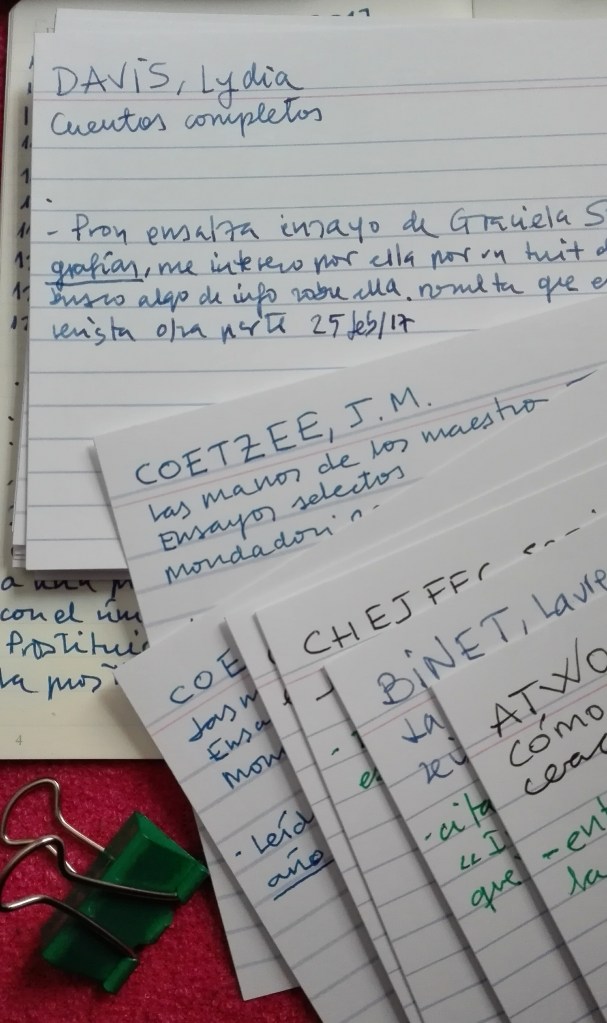 DAVIS, Lydia
Cuentos completos
- Pron ensalza ensayo de Graciela S
grafías, me intereso por ella por un tuit d
busco algo de info sobre ella. resulta que e
revista otra parte 25 feb/17
COETZEE, J.M.
Las manos de los maestro
Ensayos selectos
Mondadori
a una
con el
Prostitui
la
4
COE
Las m
Ensa
Mon
- Leíd
año
CHEJFEC
BINET, Laure
La
ATWO
Cómo
cerac
- cita
"I
que
- ent
la